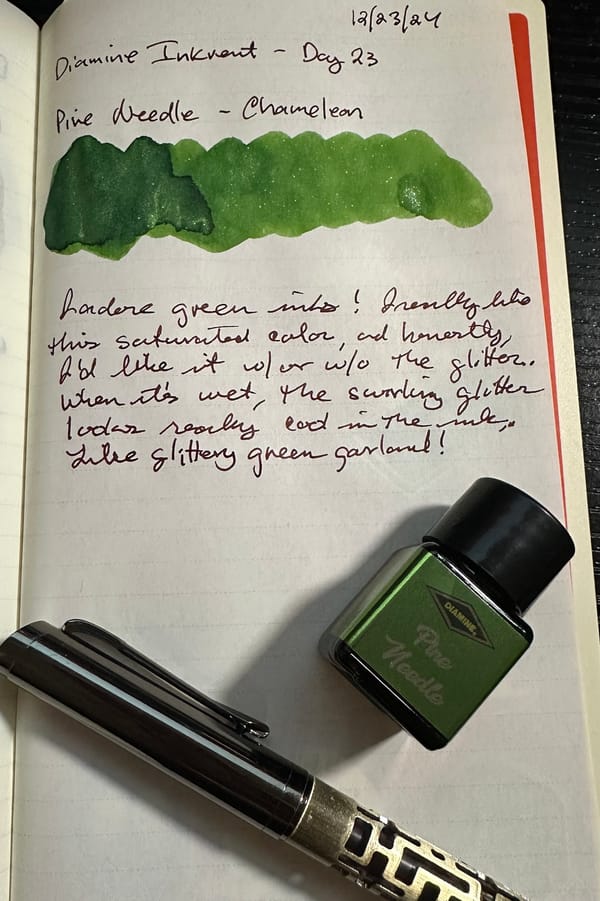 12/23/24
Diamine Inkvent - Day 23
Pine Needle - Chameleon
I adore green inks! I really like
this saturated color, ad honestly,
I'd like it w/or w/o the glitter.
When it's wet, the swirling glitter
looks really cool in the ink,.
Like glittery green garland!
DIAMINE
Pine
Needle